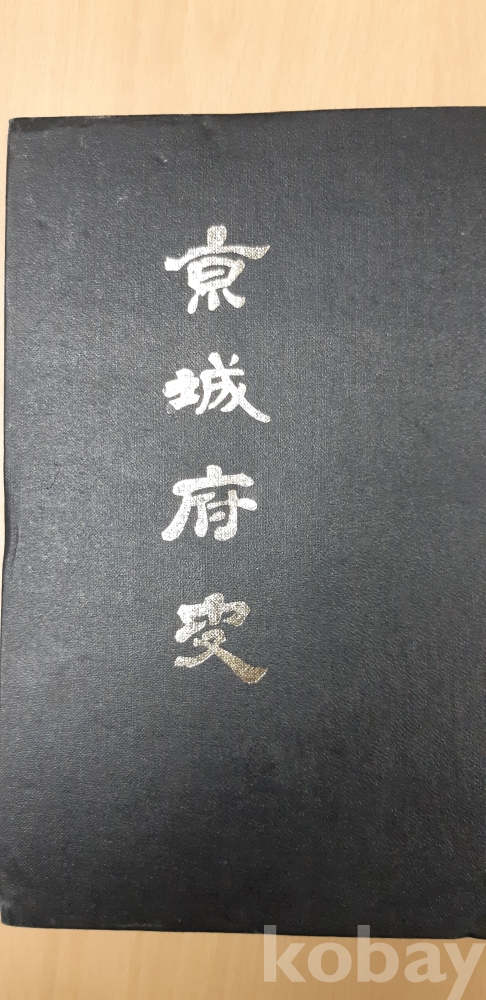 京城府史
kobay